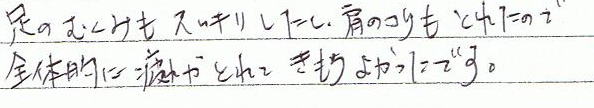 足のむくみもスッキリしたし、肩のコリもとれたので
全体的に疲れがとれて きもちよかったです。